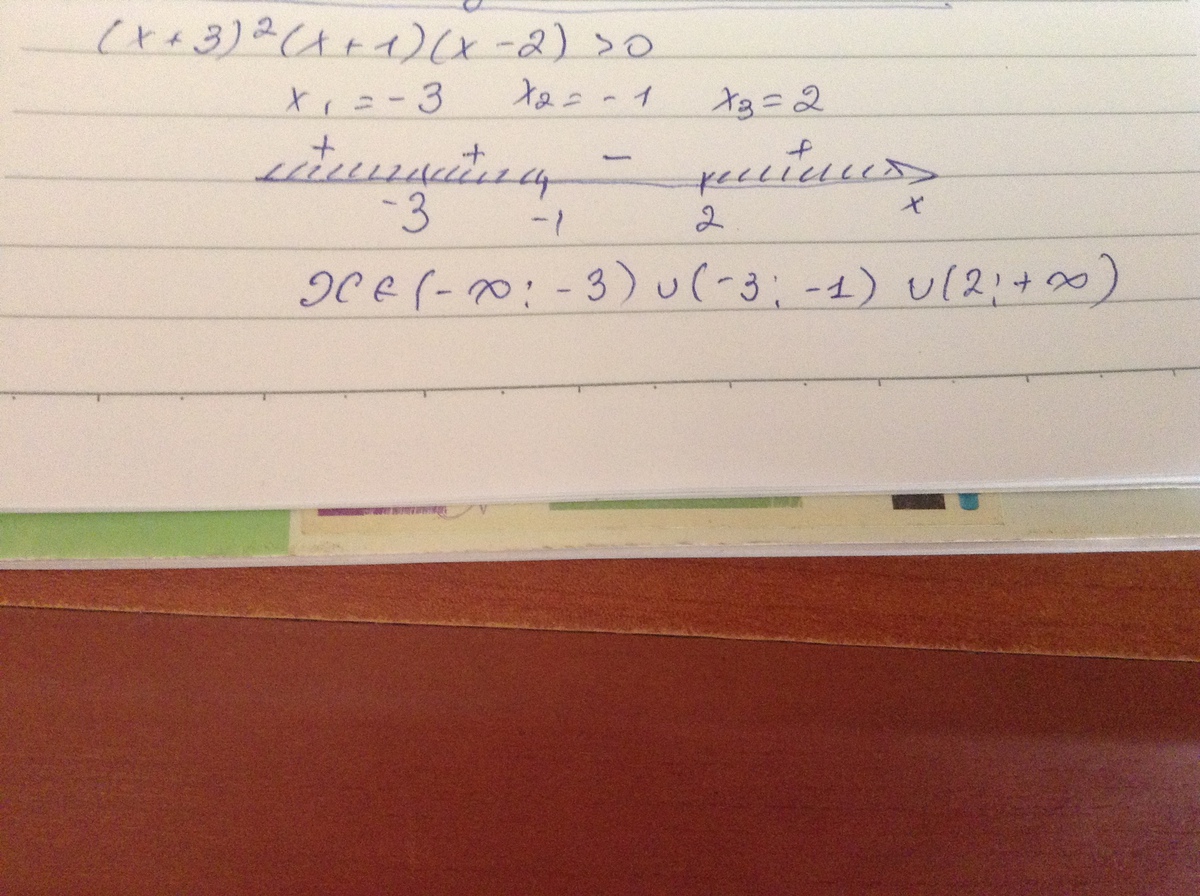 (x+3)²(x+1)(x-2) >0
x₁ = -3 x₂ = -1 x₃ = 2
+ + - +
-3 -1 2 x
x ∈ (-∞; -3) ∪ (-3; -1) ∪ (2; +∞)